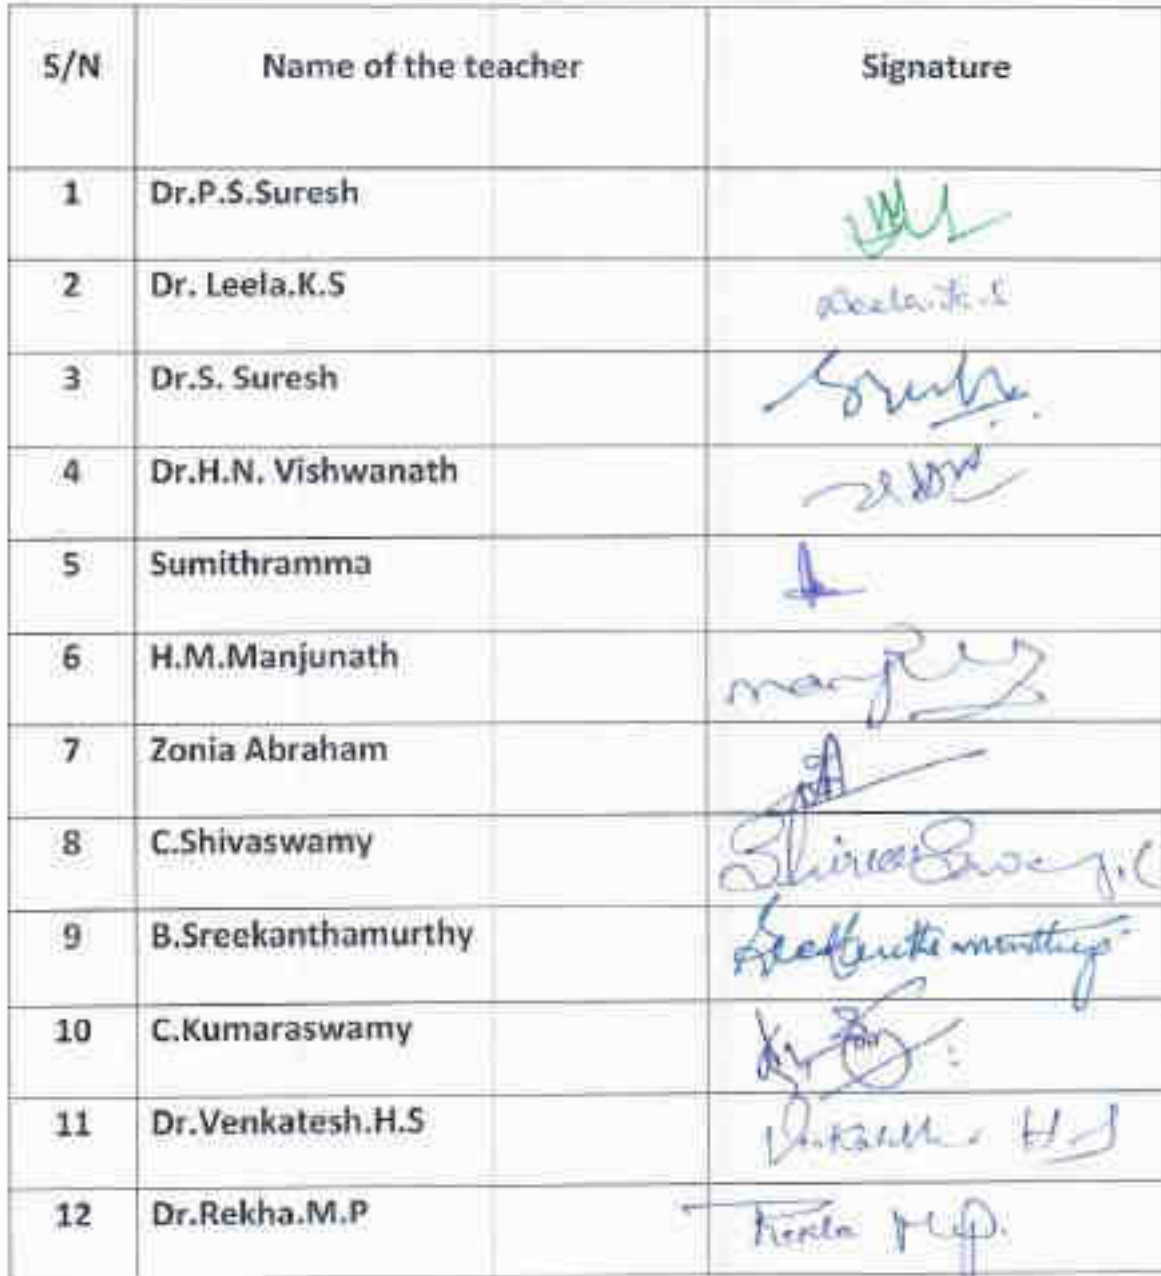 S/N Name of the teacher Signature
1 Dr.P.S.Suresh
2 Dr. Leela.K.S Leela.K.S
3 Dr.S. Suresh
4 Dr.H.N. Vishwanath
5 Sumithramma
6 H.M.Manjunath
7 Zonia Abraham
8 C.Shivaswamy ShivaSwamy.C
9 B.Sreekanthamurthy Sreekanthamurthy
10 C.Kumaraswamy
11 Dr.Venkatesh.H.S Venkatesh H.S
12 Dr.Rekha.M.P Rekha M.P.